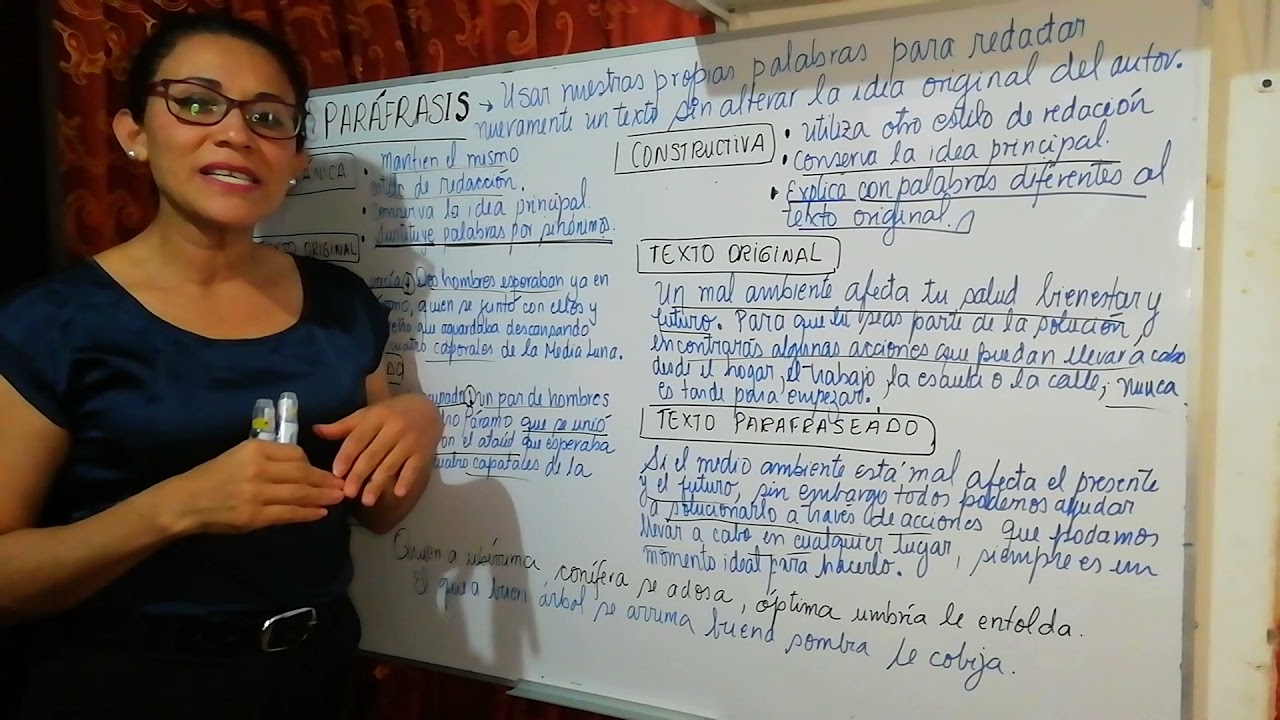 PARÁFRASIS → Usar nuestras propias palabras para redactar
nuevamente un texto sin alterar la idea original del autor.
ÁNICA
• mantien el mismo
estilo de redacción.
• Conserva la idea principal.
• Sustituye palabras por sinónimos.
TEXTO ORIGINAL
Dos hombres esperaban ya en
quien se juntó con ellos y
que aguardaba descansando
cuatro caporales de la Media Luna.
un par de hombres
Páramo que se unió
con el ataúd que esperaba
cuatro capatales de la
CONSTRUCTIVA
• utiliza otro estilo de redacción
• Conserva la idea principal.
• Explica con palabras diferentes al
texto original.
TEXTO ORIGINAL
Un mal ambiente afecta tu salud bienestar y
futuro. Para que tú seas parte de la solución,
encontrarás algunas acciones que puedan llevar a cabo
desde el hogar, el trabajo, la escuela o la calle, nunca
es tarde para empezar.
TEXTO PARAFRASEADO
Si el medio ambiente está mal afecta el presente
y el futuro, sin embargo todos podemos ayudar
a solucionarlo a través de acciones que podamos
llevar a cabo en cualquier lugar, siempre es un
momento ideal para hacerlo.
Quien a conífera se adosa, óptima umbría le entolda.
El que a buen árbol se arrima buena sombra le cobija.